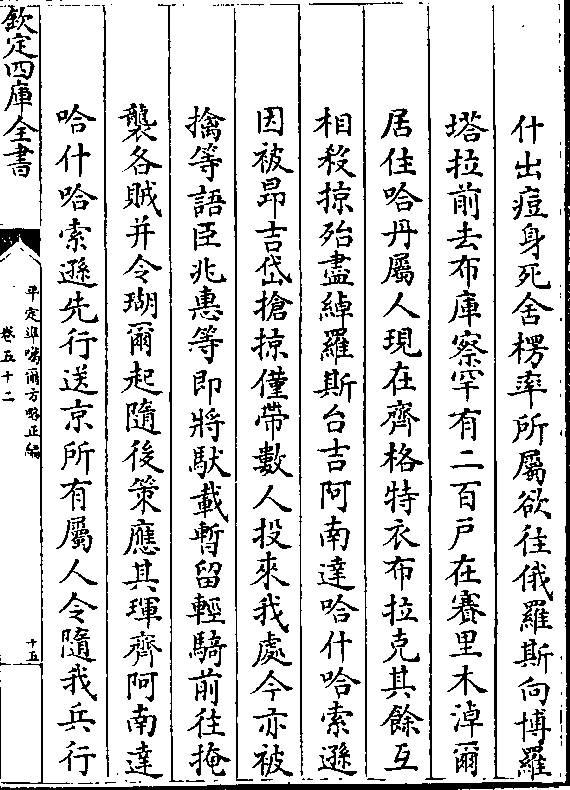 什出痘身死舍楞率所屬欲往俄羅斯向博羅
塔拉前去布庫察罕有二百戸在賽里木淖爾
居住哈丹屬人現在齊格特衣布拉克其餘互
相殺掠殆盡綽羅斯台吉阿南達哈什哈索遜
因被昂吉岱搶掠僅帶數人投來我處今亦被
擒等語臣兆惠等即將馱載暫留輕騎前往掩
襲各賊并令瑚爾起隨後策應其琿齊阿南達
哈什哈索遜先行送京所有屬人令隨我兵行
欽定四庫全書
平定準噶爾方略正編
卷五十二
十五